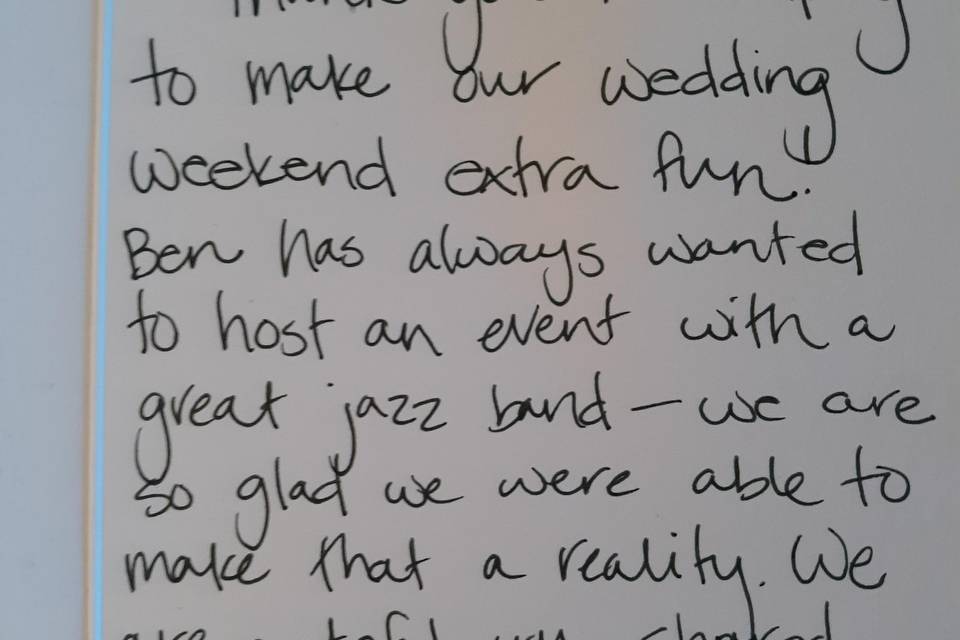 to make our wedding
weekend extra fun!
Ben has always wanted
to host an event with a
great jazz band — we are
so glad we were able to
make that a reality. We